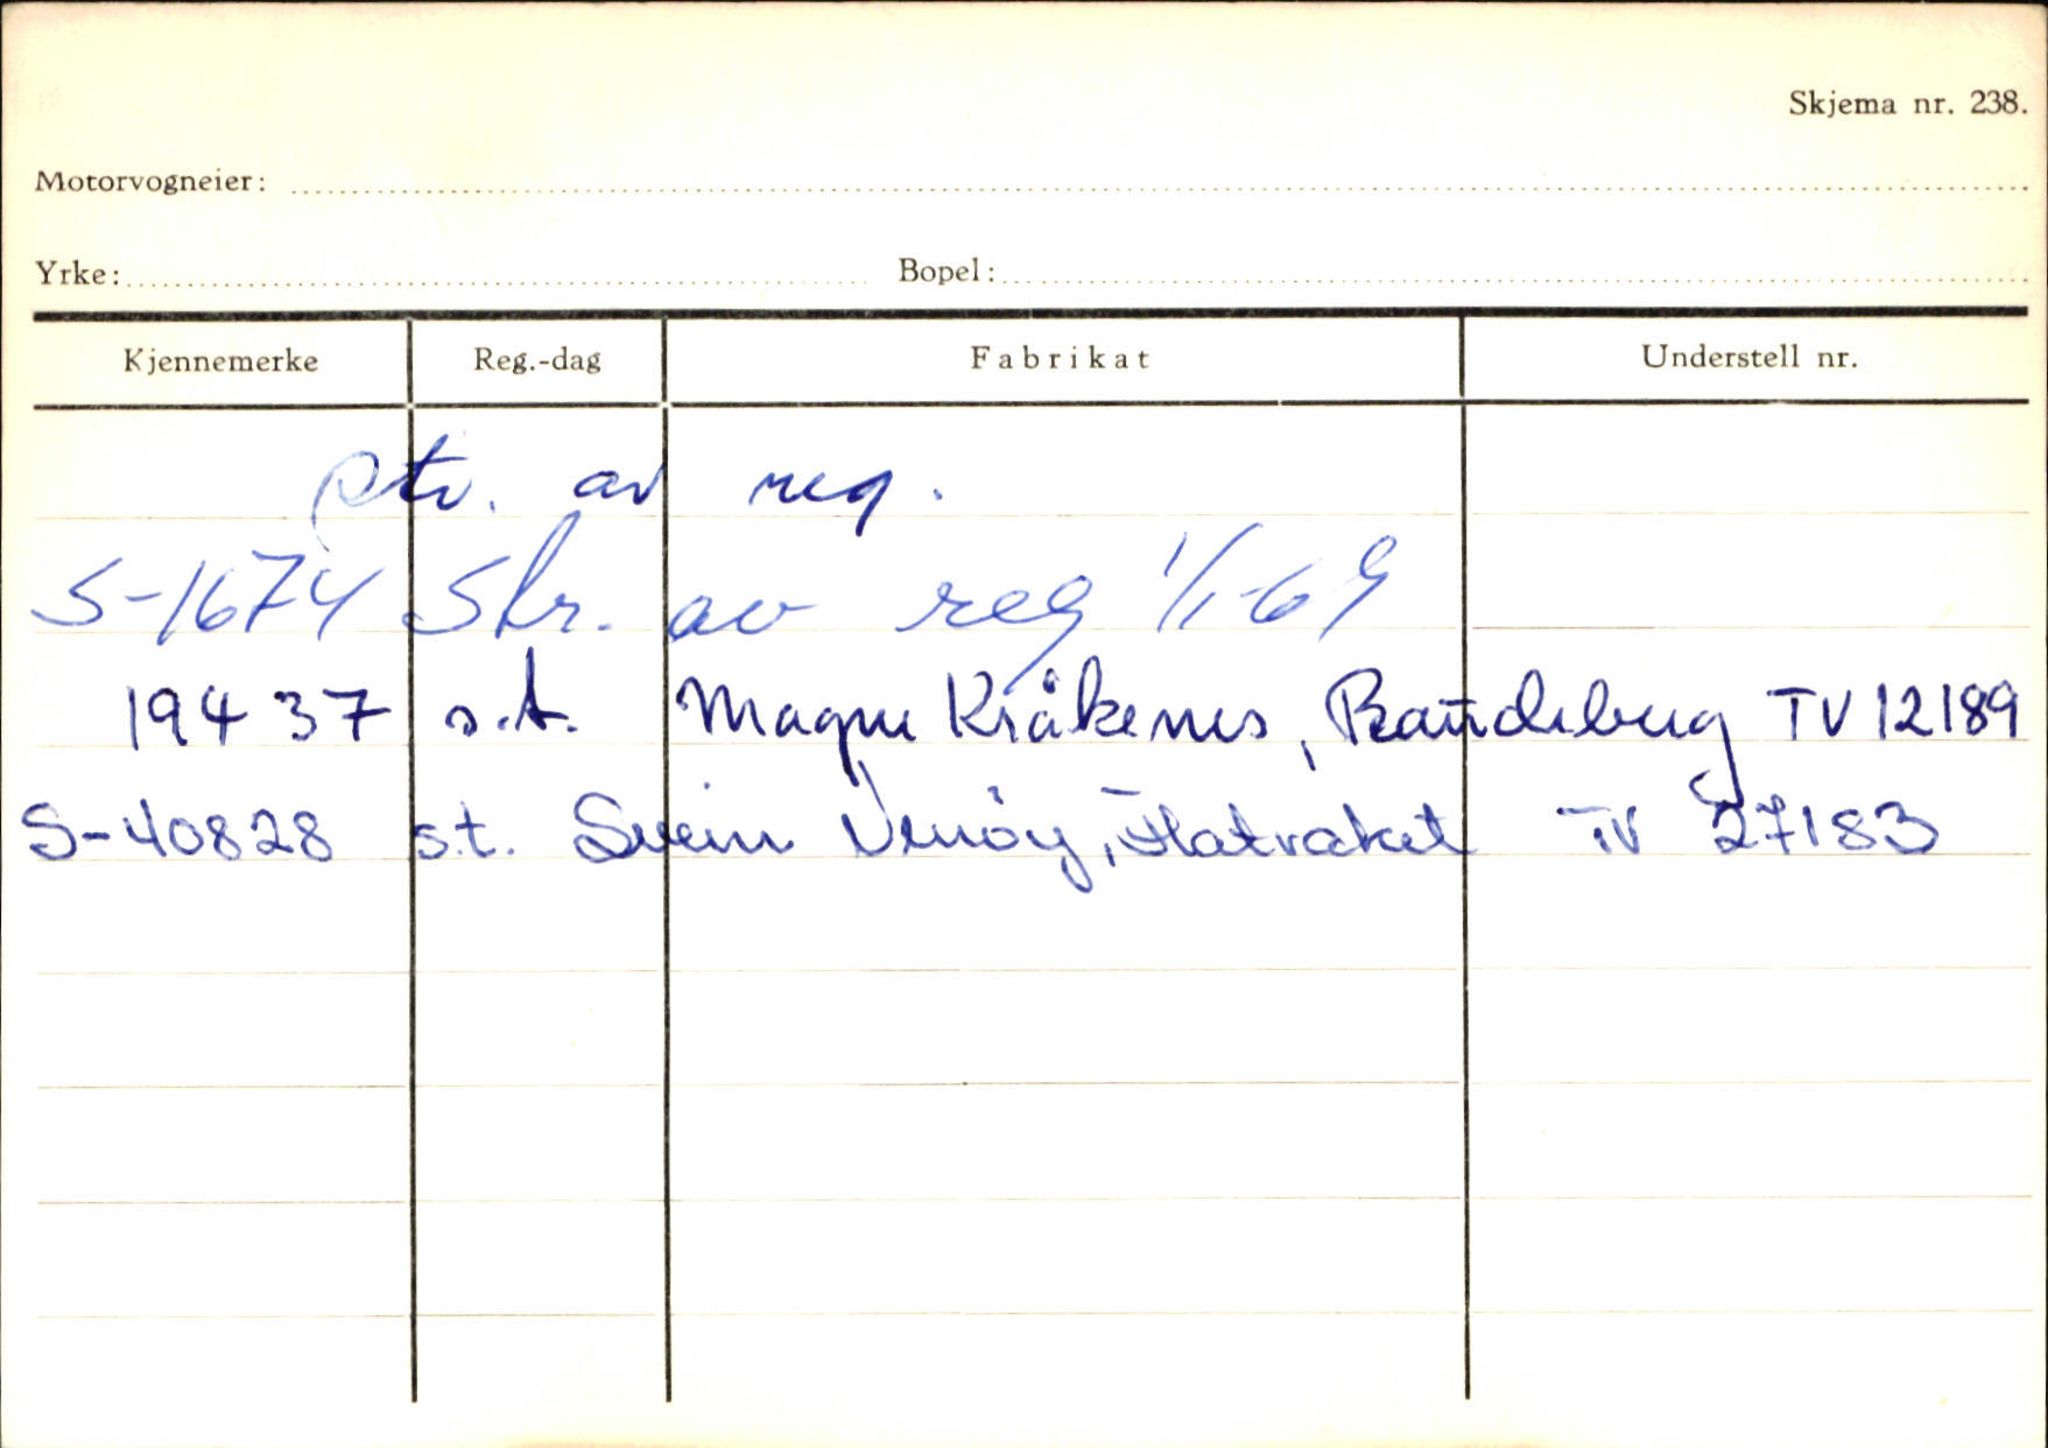 Skjema nr. 238.
Motorvogneier:
Yrke: Bopel:
Kjennemerke Reg.-dag Fabrikat Understell nr.
av reg.
S-1674 Skr. av reg 1/1-69
19437 s.t. Magne Kråkenes, Raudeberg TV 12189
S-40828 s.t. Svein Venöy, Flatraket TV 27183